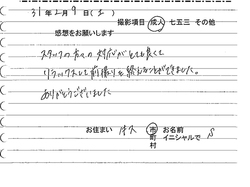 31年2月9日(土)
撮影項目 成人 七五三 その他
感想をお願いします
スタッフの方々の対応がとても良くて
リラックスして前撮りを終えることができました。
ありがとうございました
お住まい 市 お名前
町 イニシャルで S
村